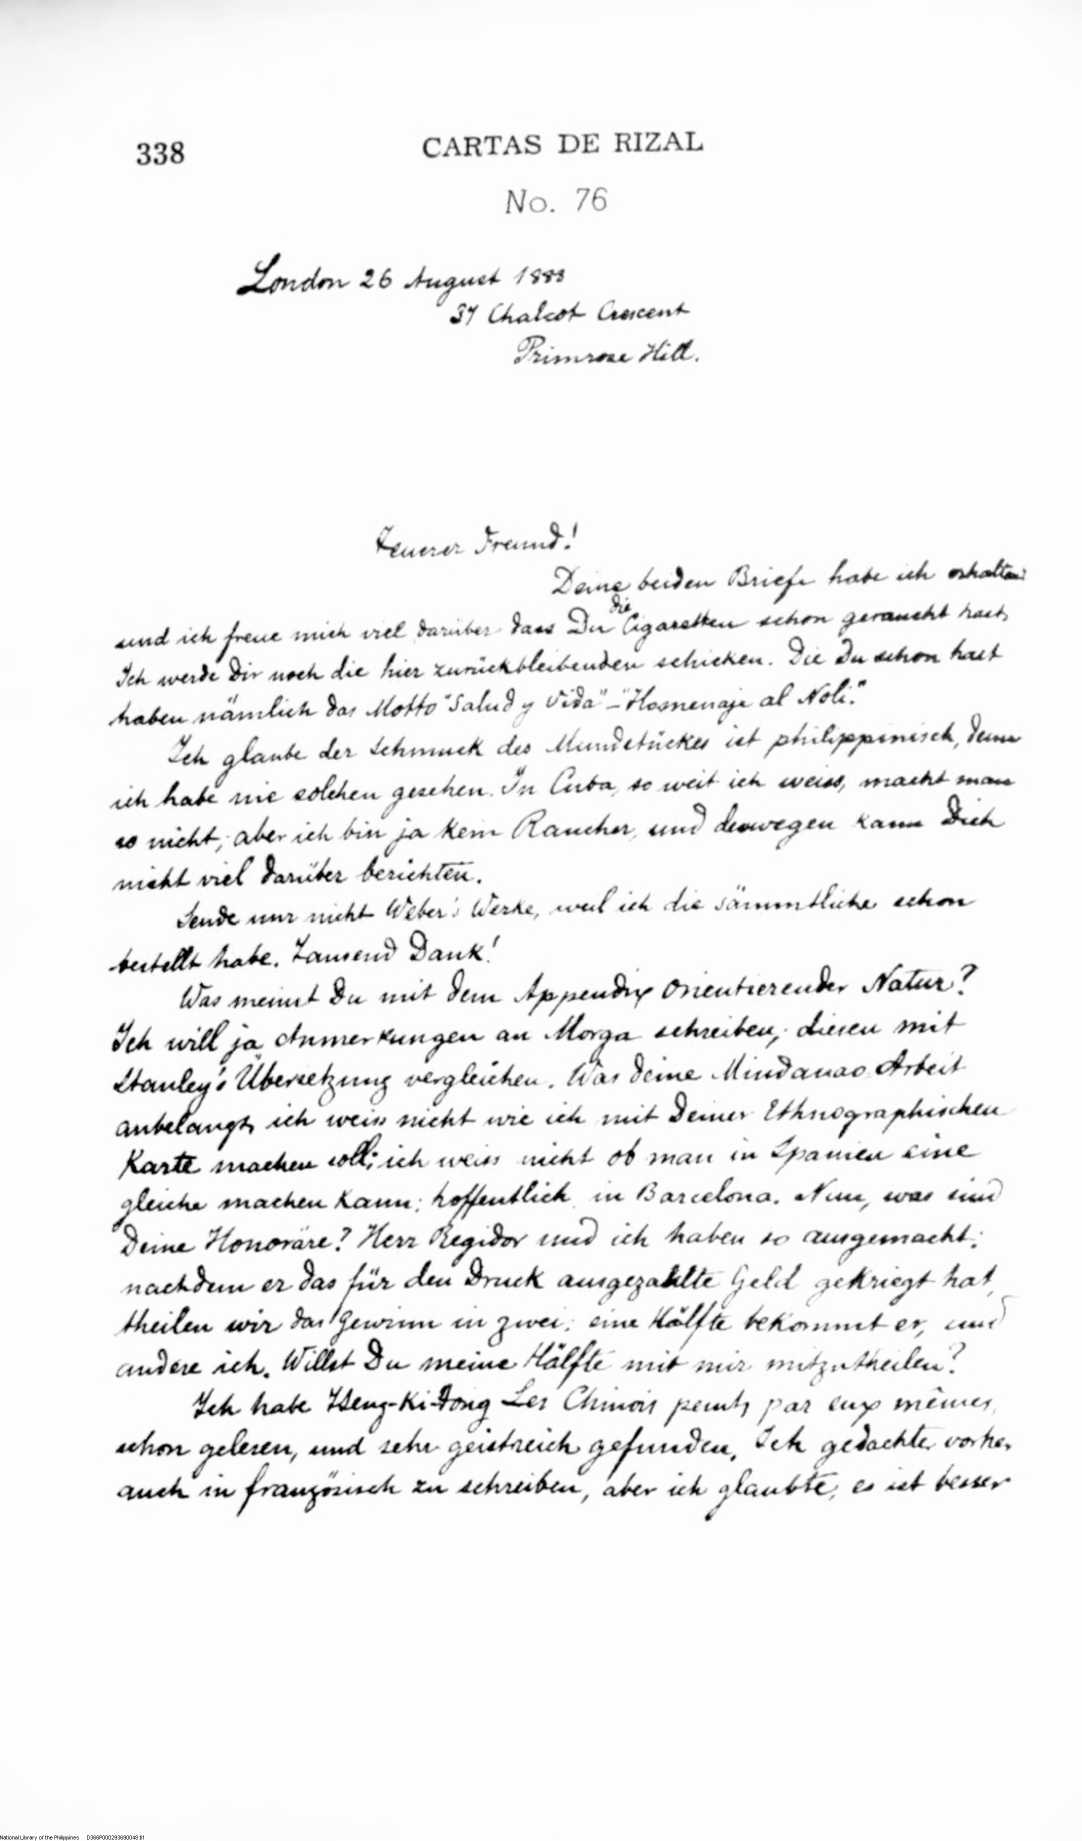 338 CARTAS DE RIZAL
No. 76
London 26 August 1888
37 Chalcot Crescent
Primrose Hill.
Teurer Freund!
Deine beiden Briefe habe ich erhalten
und ich freue mich viel darüber dass Du die Cigaretten schon geraucht hast,
Ich werde Dir noch die hier zurückbleibenden schicken. Die Du schon hast
haben nämlich das Motto "Salud y Vida" – "Homenaje al Noli."
Ich glaube der Schmuck des Mundstückes ist philippinisch, denn
ich habe nie solchen gesehen. In Cuba, so weit ich weiss, macht man
so nicht; aber ich bin ja kein Raucher, und deswegen kann Dich
nicht viel darüber berichten.
Sende nur nicht Weber's Werke, weil ich die sämmtliche schon
bestellt habe. Tausend Dank!
Was meinst Du mit dem Appendix orientierender Natur?
Ich will ja Anmerkungen an Morga schreiben, diesen mit
Stanley's Übersetzung vergleichen. Was deine Mindanao Arbeit
anbelangt, ich weiss nicht wie ich mit Deiner Ethnographischen
Karte machen soll; ich weiss nicht ob man in Spanien eine
gleiche machen kann; hoffentlich in Barcelona. Nun, was sind
Deine Honoräre? Herr Regidor und ich haben so ausgemacht:
nachdem er das für den Druck ausgezahlte Geld gekriegt hat,
theilen wir das Gewinn in zwei: eine Hälfte bekommt er, und
andere ich. Willst Du meine Hälfte mit mir mitzutheilen?
Ich habe Tseng-Ki-Tong Les Chinois peints par eux mêmes,
schon gelesen, und sehr geistreich gefunden. Ich gedachte vorher
auch in französisch zu schreiben, aber ich glaubte, es ist besser
National Library of the Philippines